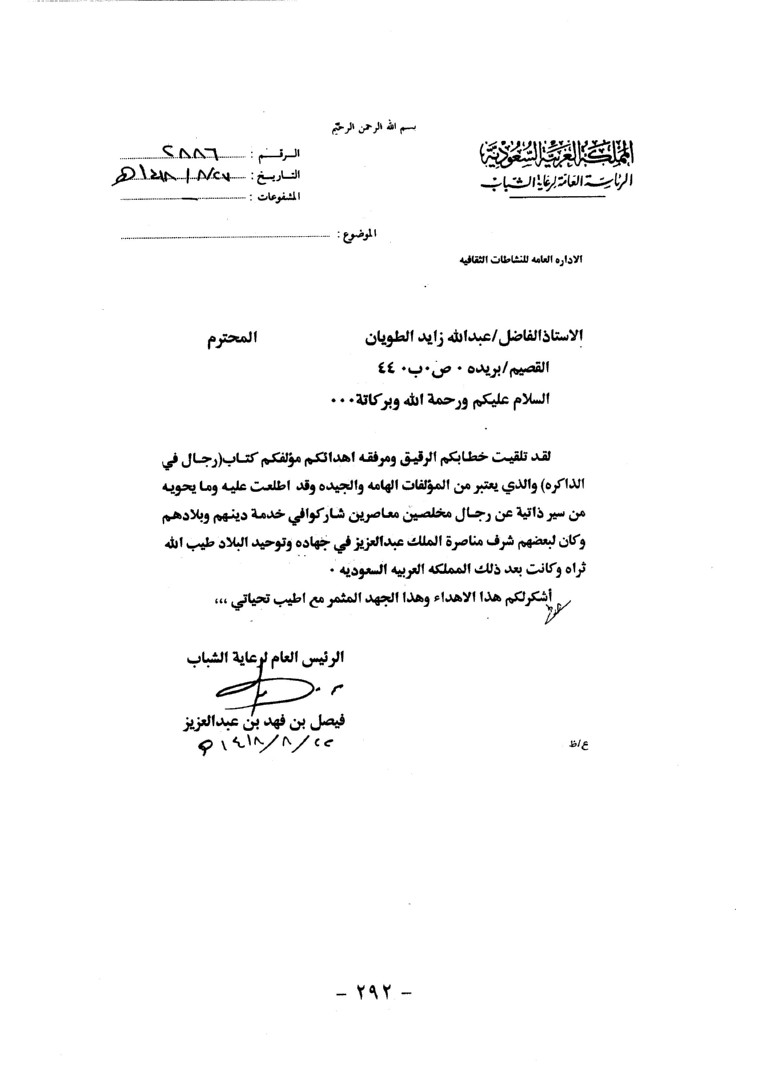 بسم الله الرحمن الرحيم
المملكة العربية السعودية
الرئاسة العامة لرعاية الشباب
الرقم : ٢٨٨٦
التاريخ : ١٤١٨/٨/٢٧هـ
المشفوعات : ــ
الموضوع :
الاداره العامه للنشاطات الثقافيه
الاستاذالفاضل/عبدالله زايد الطويان المحترم
القصيم/بريده ٠ ص٠ب٠ ٤٤
السلام عليكم ورحمة الله وبركاتة٠٠٠
لقد تلقيت خطابكم الرقيق ومرفقه اهدائكم مؤلفكم كتاب(رجال في
الذاكره) والذي يعتبر من المؤلفات الهامه والجيده وقد اطلعت عليه وما يحويه
من سير ذاتية عن رجال مخلصين معاصرين شاركوافي خدمة دينهم وبلادهم
وكان لبعضهم شرف مناصرة الملك عبدالعزيز في جهاده وتوحيد البلاد طيب الله
ثراه وكانت بعد ذلك المملكه العربيه السعوديه ٠
أشكرلكم هذا الاهداء وهذا الجهد المثمر مع اطيب تحياتي ,,,
الرئيس العام لرعاية الشباب
فيصل بن فهد بن عبدالعزيز
١٤١٨/٨/٢٢هـ
ع/ظ
- ٢٩٢ -